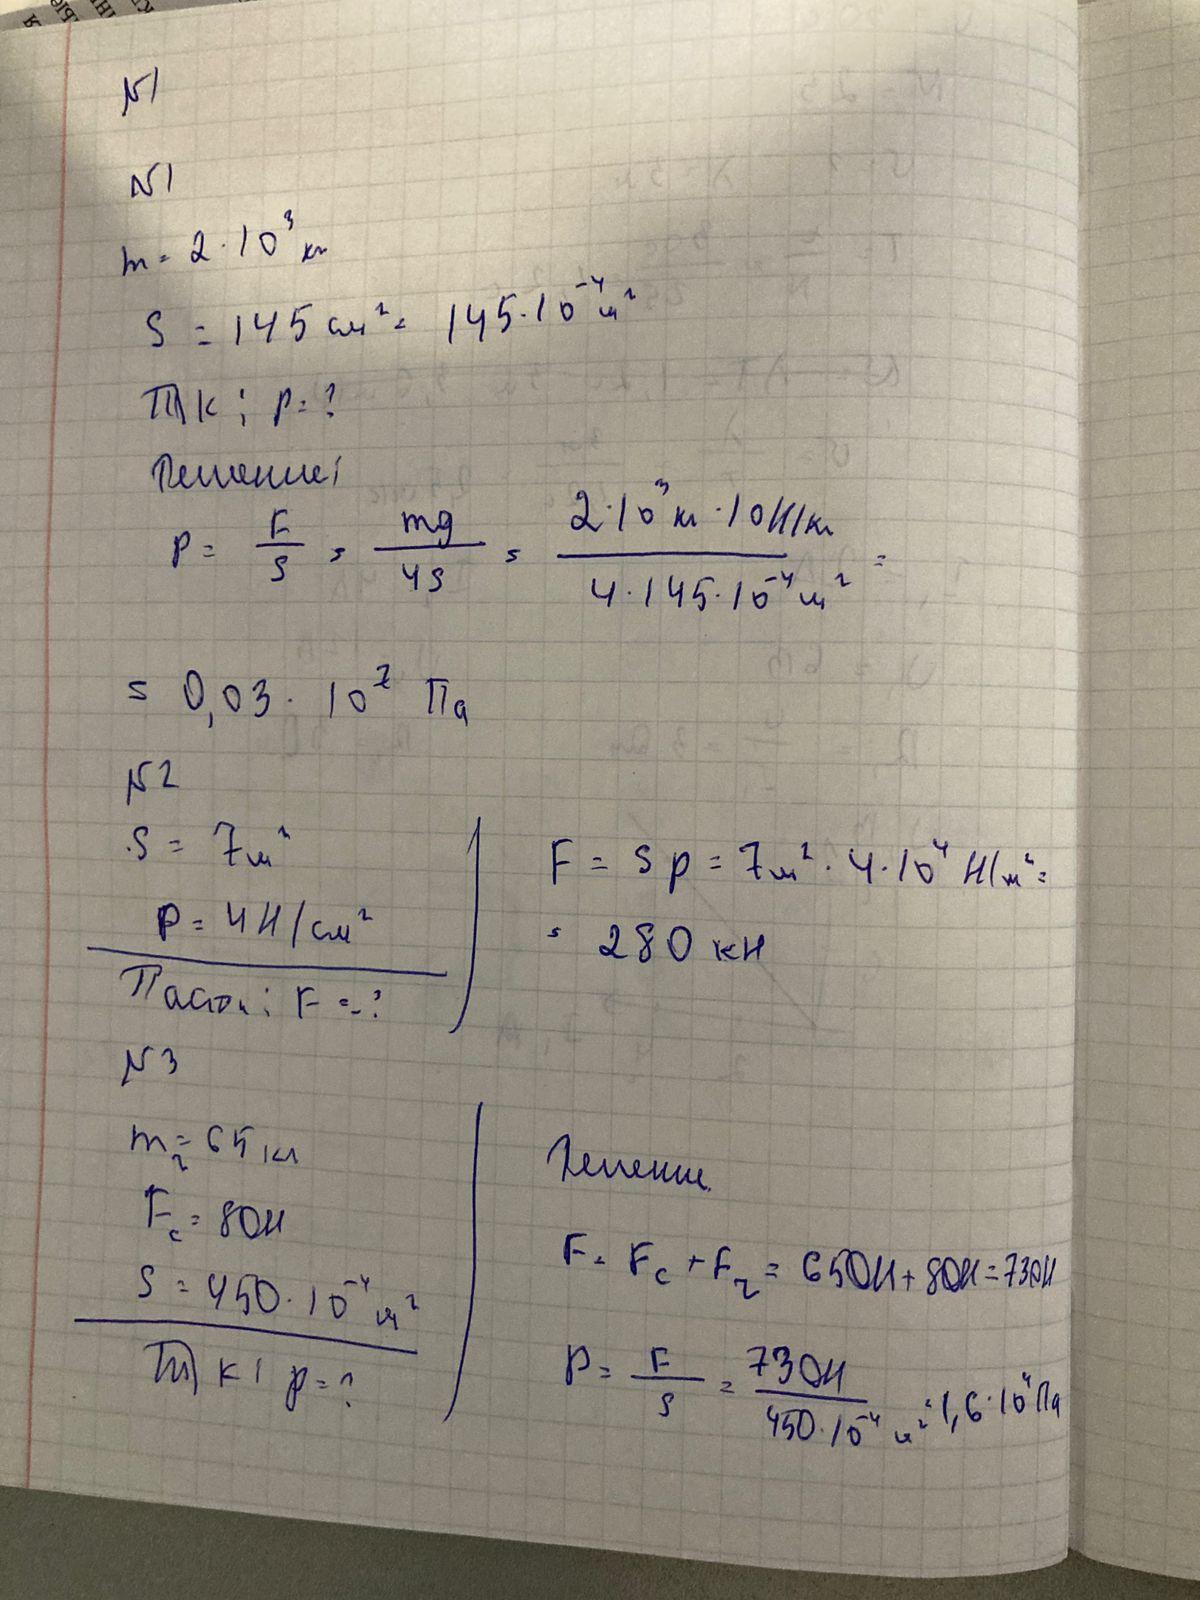 N1
N1
m = 2·10³ кг
S = 145 см² = 145·10⁻⁴ м²
р = ?
Решение:
p = F/S = mg/4S = 2·10³ кг · 10 Н/кг / 4·145·10⁻⁴ м² =
= 0,03 · 10⁷ Па
N2
S = 7 м²
p = 4 Н/см²
F = ?
F = Sp = 7 м² · 4·10⁴ Н/м² =
= 280 кН
N3
mч = 65 кг
Fс = 80Н
S = 450·10⁻⁴ м²
p = ?
Решение
F = Fс + Fч = 650Н + 80Н = 730Н
p = F/S = 730Н / 450·10⁻⁴ м² = 1,6·10⁴ Па